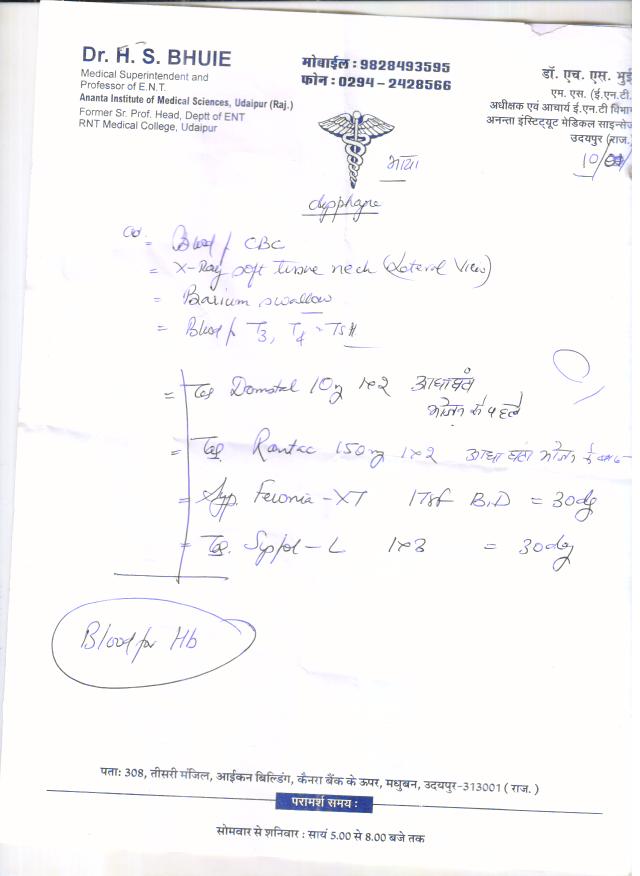 Dr. H. S. BHUIE
Medical Superintendent and
Professor of E.N.T.
Ananta Institute of Medical Sciences, Udaipur (Raj.)
Former Sr. Prof. Head, Deptt of ENT
RNT Medical College, Udaipur
मोबाईल : 9828493595
फोन : 0294 - 2428566
डॉ. एच. एस. भुई
एम. एस. (ई.एन.टी.
अधीक्षक एवं आचार्य ई.एन.टी विभा
अनन्ता इंस्टिट्यूट मेडिकल साइन्सेज
उदयपुर (राज.
10/
= Blood f CBC
= X-Ray soft tissue neck (Lateral View)
= Barium swallow
= Blood f T3, T4 - TSH
= Tab Domstal 10mg 1x2 आधा घंटे
भोजन से पहले
= Tab. Rantac 150mg 1x2 आधा घंटा भोजन के
= Syp. Feronia-XT 1Tsf B.D = 30dy
= Tab. 1x3 = 30dy
Blood for Hb
पता: 308, तीसरी मंजिल, आईकन बिल्डिंग, कैनरा बैंक के ऊपर, मधुबन, उदयपुर-313001 ( राज. )
परामर्श समय :
सोमवार से शनिवार : सायं 5.00 से 8.00 बजे तक